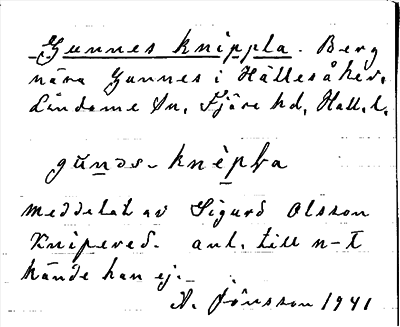 Gunnes knippla. Berg
nära Gunnes i Hällesåker,
Lindome sn, Fjäre hd, Hall. l.
gu̲nəs-knèpḷa
meddelat av Sigurd Olsson
Knipered. ant. till n-t
kände han ej.
A. Jönsson 1941